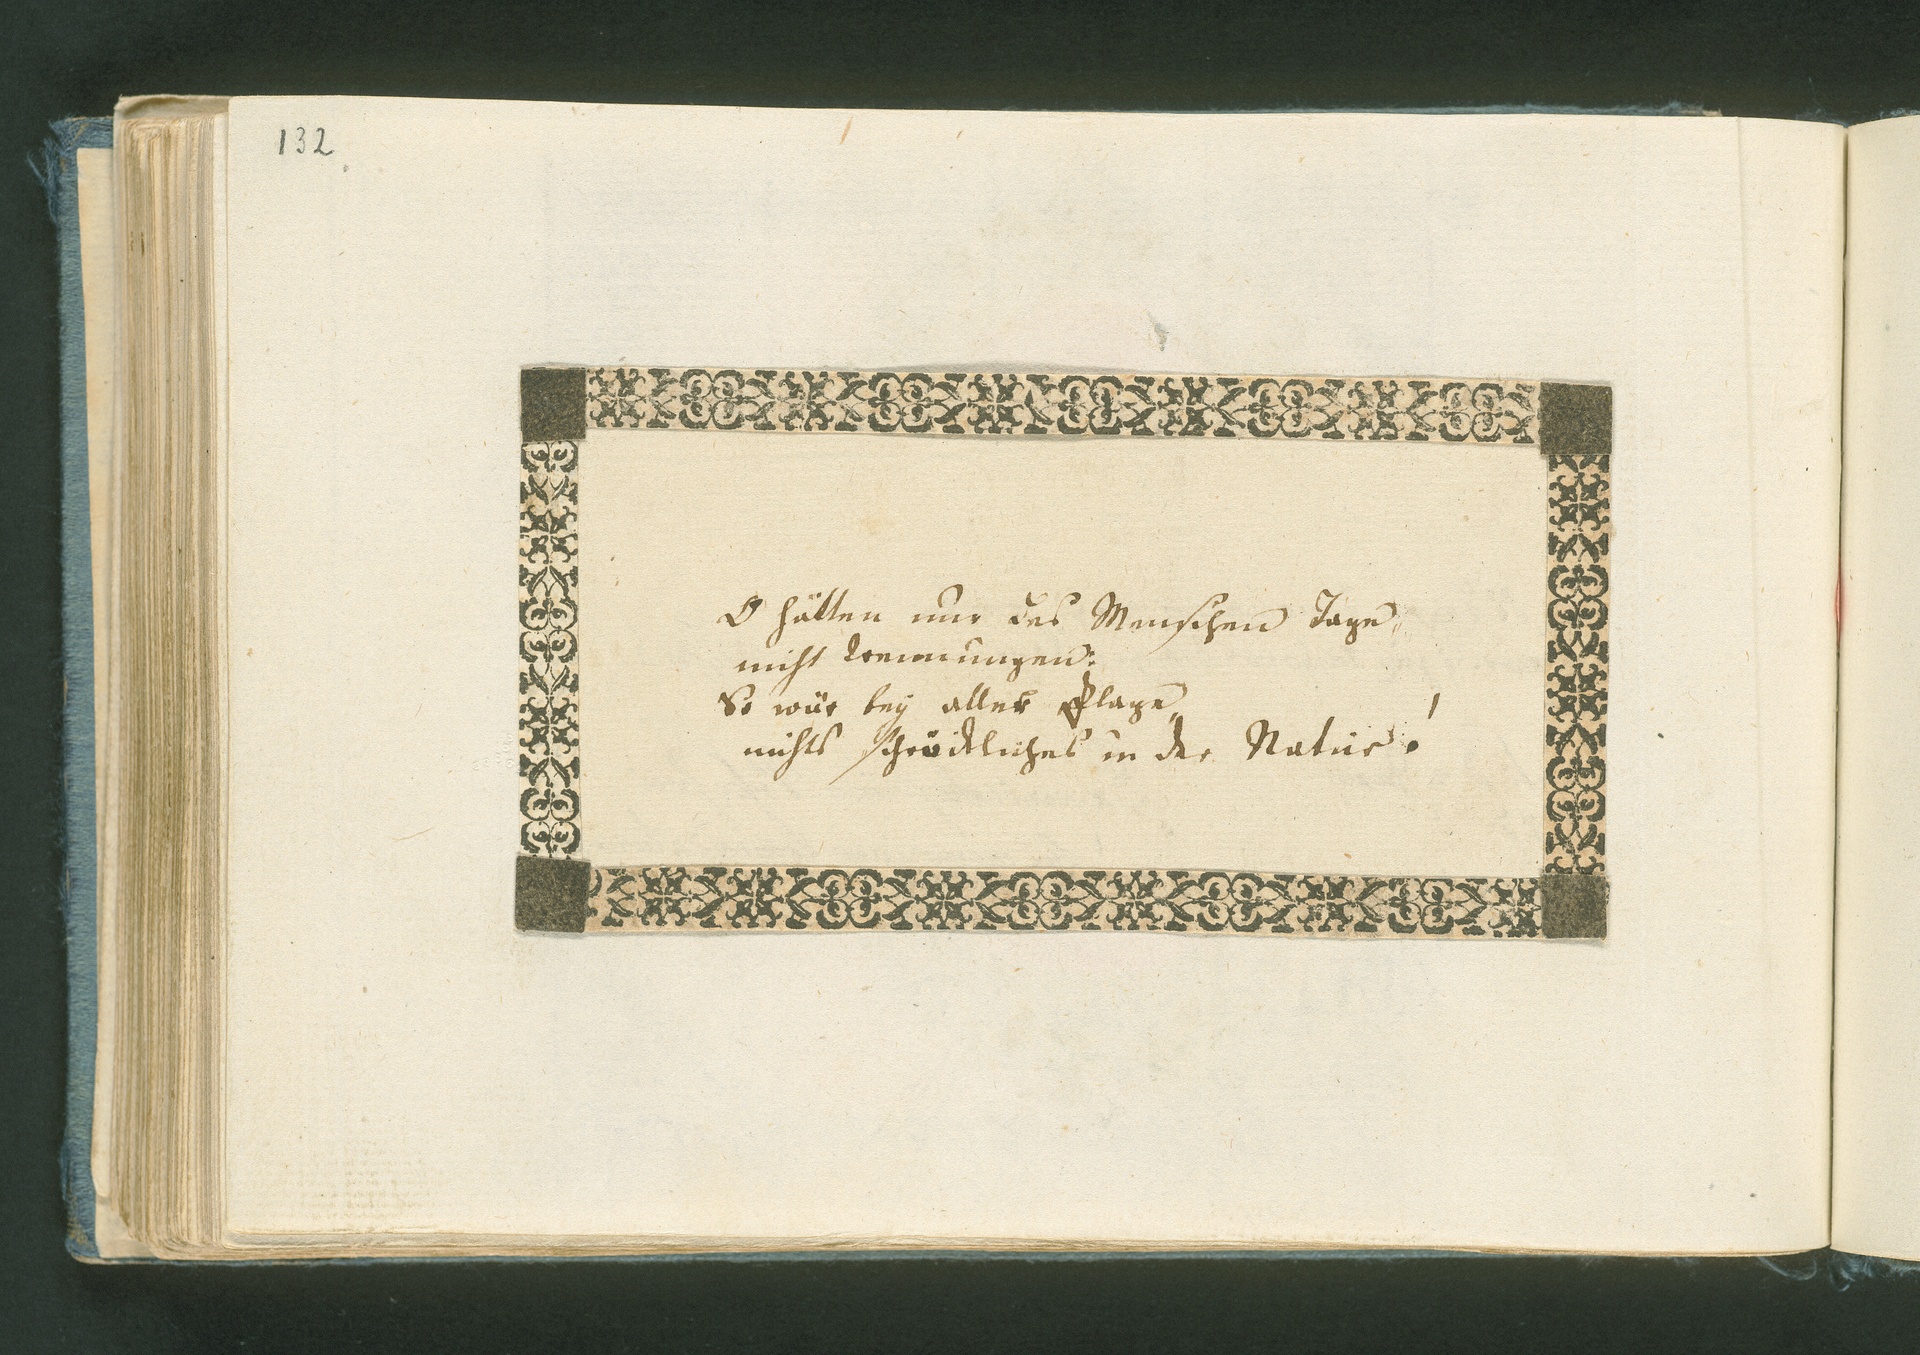 132
O hätten nur des Menschen Tage,
nicht trennungen:
So wär bey aller Plage,
nichts schröckliches in der Natur!